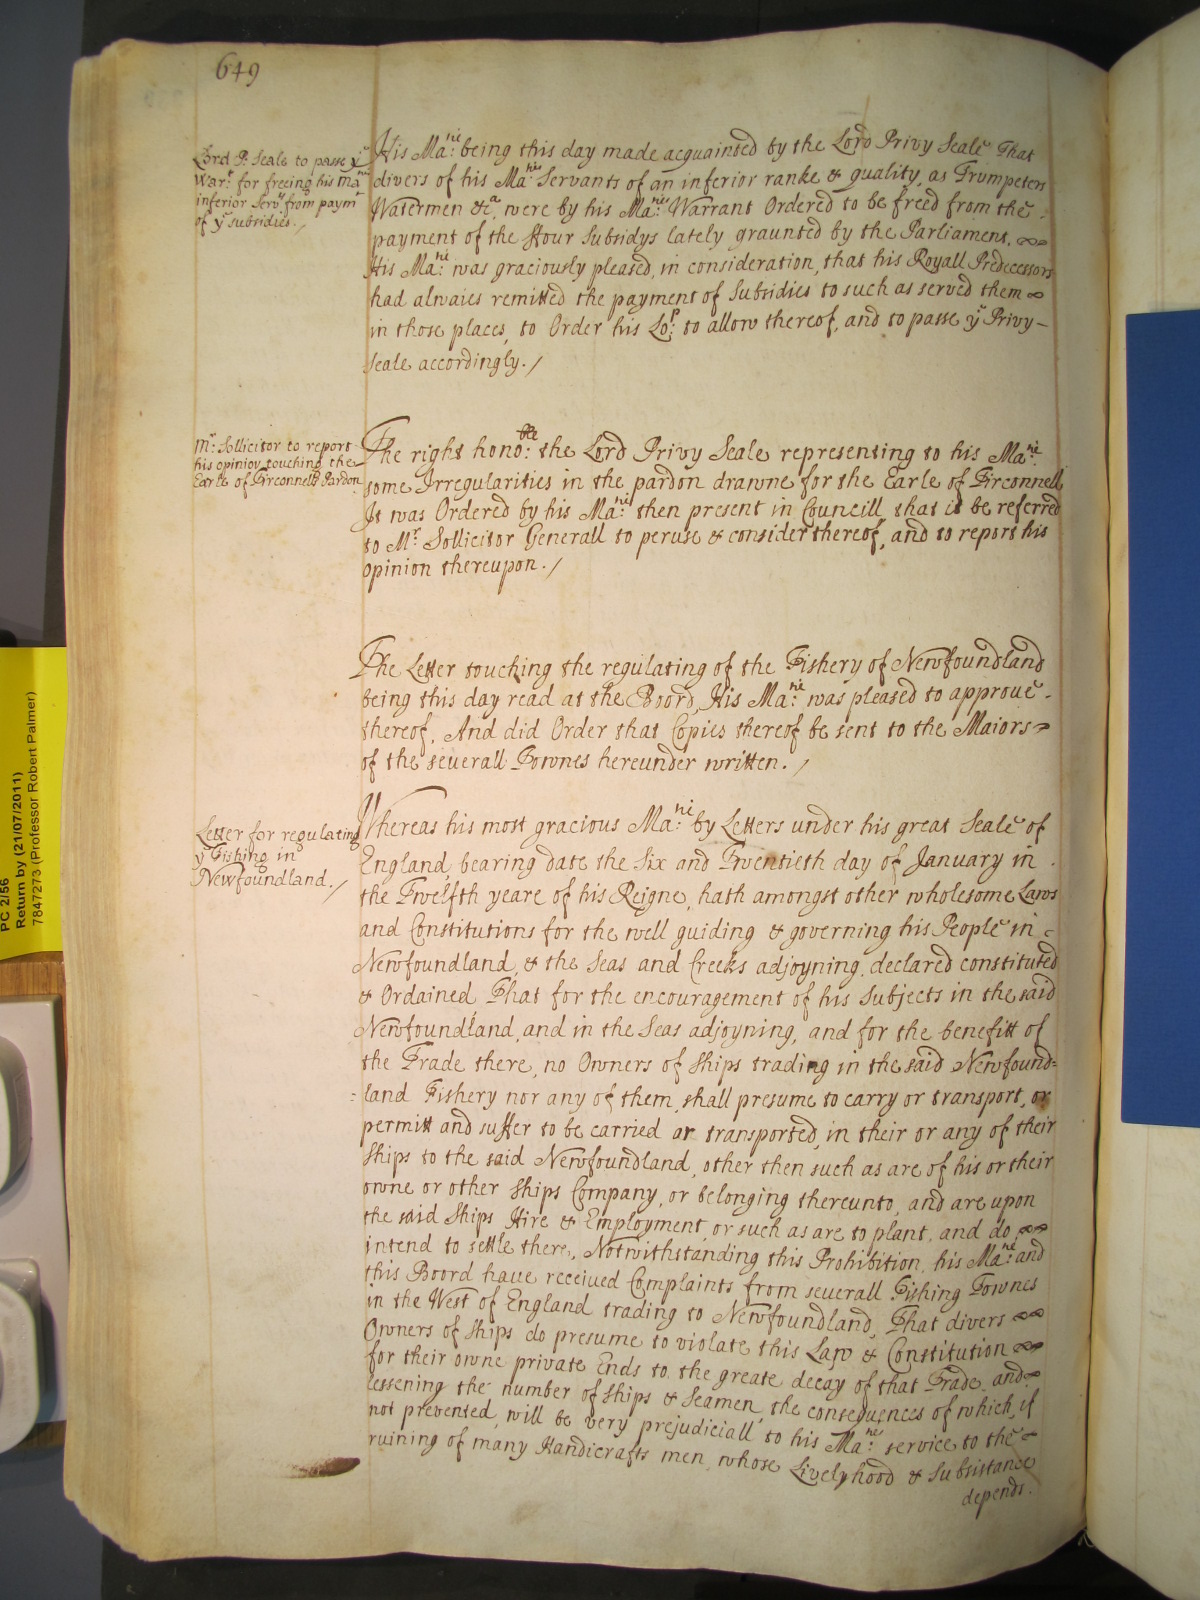 649
Lord P: Seale to passe yͤ
Warᵗ: for freeing his Maᵗˢ
inferior Servᵗˢ from paymᵗ
of yͤ subsidies./
His Maᵗⁱᵉ: being this day made acquainted by the Lord Privy Seale That
divers of his Maᵗⁱᵉˢ Servants of an inferior ranke & quality, as Trumpeters
Watermen &cᵃ, were by his Maᵗⁱᵉˢ Warrant Ordered to be freed from the
payment of the ffour Subsidys lately graunted by the Parliament.
His Maᵗⁱᵉ: was graciously pleased, in consideration, that his Royall Predecessors
had alwaies remitted the payment of Subsidies to such as served them
in those places, to Order his Loᵖ: to allow thereof, and to passe yͤ Privy-
Seale accordingly./
Mʳ: Sollicitor to report
his opinion touching the
Earle of Tirconnells Pardon
The right honoᵇˡᵉ: the Lord Privy Seale representing to his Maᵗⁱᵉ:
some Irregularities in the pardon drawne for the Earle of Tirconnell
It was Ordered by his Maᵗⁱᵉ: then present in Councill, that it be referred
to Mʳ: Sollicitor Generall to peruse & consider thereof, and to report his
opinion thereupon./
The Letter touching the regulating of the Fishery of Newfoundland
being this day read at the Board, His Maᵗⁱᵉ: was pleased to approue
thereof. And did Order that Copies thereof be sent to the Maiors
of the seuerall Townes hereunder written./
Letter for regulating
yͤ Fishing in
Newfoundland./
Whereas his most gracious Maᵗⁱᵉ: by Letters under his great Seale of
England, bearing date the Six and Twentieth day of January in
the Twelfth yeare of his Reigne, hath amongst other wholesome Laws
and Constitutions for the well guiding & governing his People in
Newfoundland, & the Seas and Creeks adjoyning, declared constituted
& Ordained That for the encouragement of his Subjects in the said
Newfoundland, and in the Seas adjoyning, and for the benefitt of
the Trade there, no Owners of Ships trading in the said Newfound=
=land Fishery nor any of them, shall presume to carry or transport, or
permitt and suffer to be carried or transported, in their or any of their
Ships to the said Newfoundland, other then such as are of his or their
owne or other Ships Company, or belonging thereunto, and are upon
the said Ships Hire & Employment, or such as are to plant, and do
intend to settle there. Notwithstanding this Prohibition, his Maᵗⁱᵉ: and
this Boord have received Complaints from seuerall Fishing Townes
in the West of England trading to Newfoundland, That divers
Owners of Ships do presume to violate this Law & Constitution
for their owne private Ends to the greate decay of that Trade, and
lessening the number of Ships & Seamen, the consequences of which, if
not prevented, will be very prejudiciall to his Maᵗⁱᵉˢ service to the
ruining of many Handicrafts men, whose Livelyhood & Subsistance
depends.
PC 2/56
Return by (21/07/2011)
7847273 (Professor Robert Palmer)